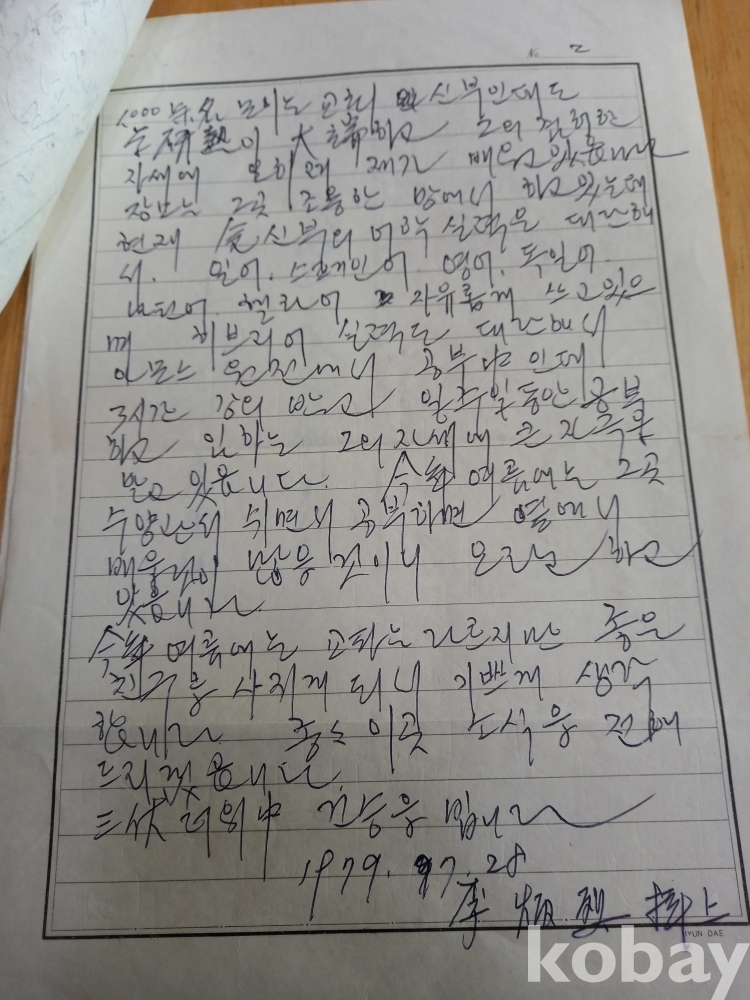 No 2
1000 余名 모이는 교회 신부인데도
능 研熱이 大端하고 그의 겸허한
자세에 오히려 제가 배우고 있읍니다
장소는 그곳 조용한 방에서 하고 있는데
현재 金신부의 어학 실력은 대단해
서. 일어. 스페인어. 영어. 독일어.
라틴어. 헬라어 자유롭게 쓰고 있으
며 히브리어 실력도 대단해서
원전에서 공부中인데
3시간 강의 받고 일주일동안 공부
하고 임하는 그의 자세에 큰 자극을
받고 있읍니다. 今年 여름에는 그곳
수양관서 쉬면서 공부하면 옆에서
배울것이 많을 것이니 오라고 하고
있읍니다.
今年 여름에는 교파는 다르지만 좋은
친구를 사귀게 되니 기쁘게 생각
합니다. 종종 이곳 소식을 전해
드리겠읍니다.
三伏 더위中 건승을 빕니다
1979. 7. 28
李 炳 烈 拜上
HYUN DAE
kobay